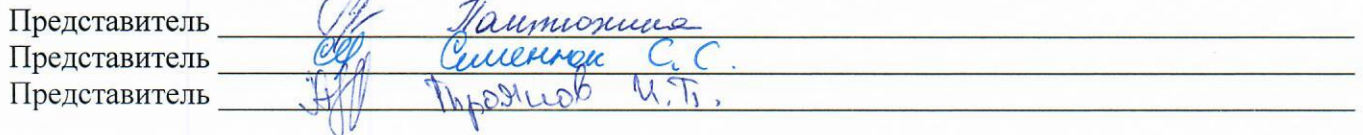 Представитель Пантюхина
Представитель Семенюк С.С.
Представитель И.П.